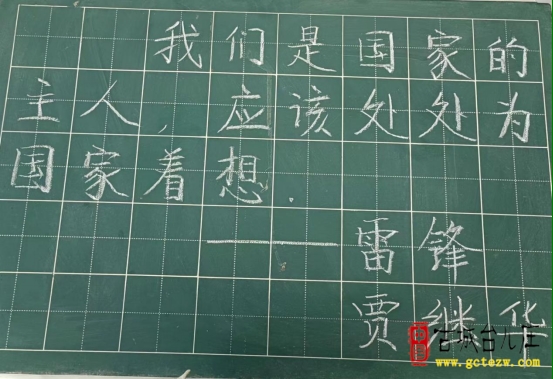 我们是国家的
主人，应该处处为
国家着想.
——雷锋
贾继华
古城台儿庄
www.gctezw.com